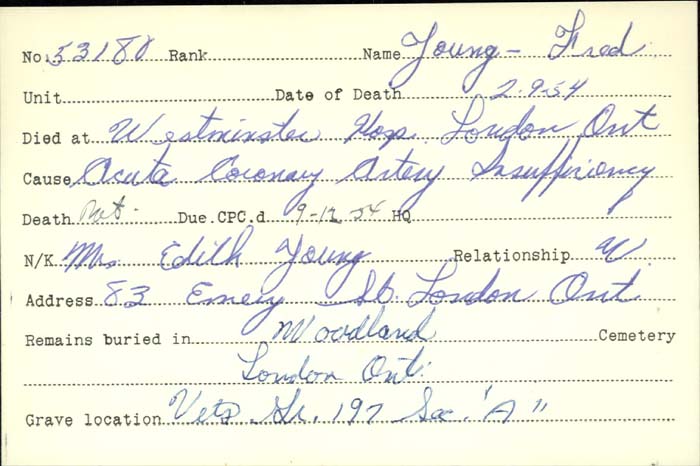 No. 53180 Rank Name Young - Fred
Unit Date of Death 2-9-54
Died at Westminster Hosp. London Ont
Cause Acute Coronary Artery Insufficiency
Death Due CPC.d 9-12-54 HQ
N/K Mrs Edith Young Relationship W.
Address 83 Emery St. London Ont.
Remains buried in Woodland Cemetery
London Ont.
Grave location Vets Gr. 197 Sec. "A"